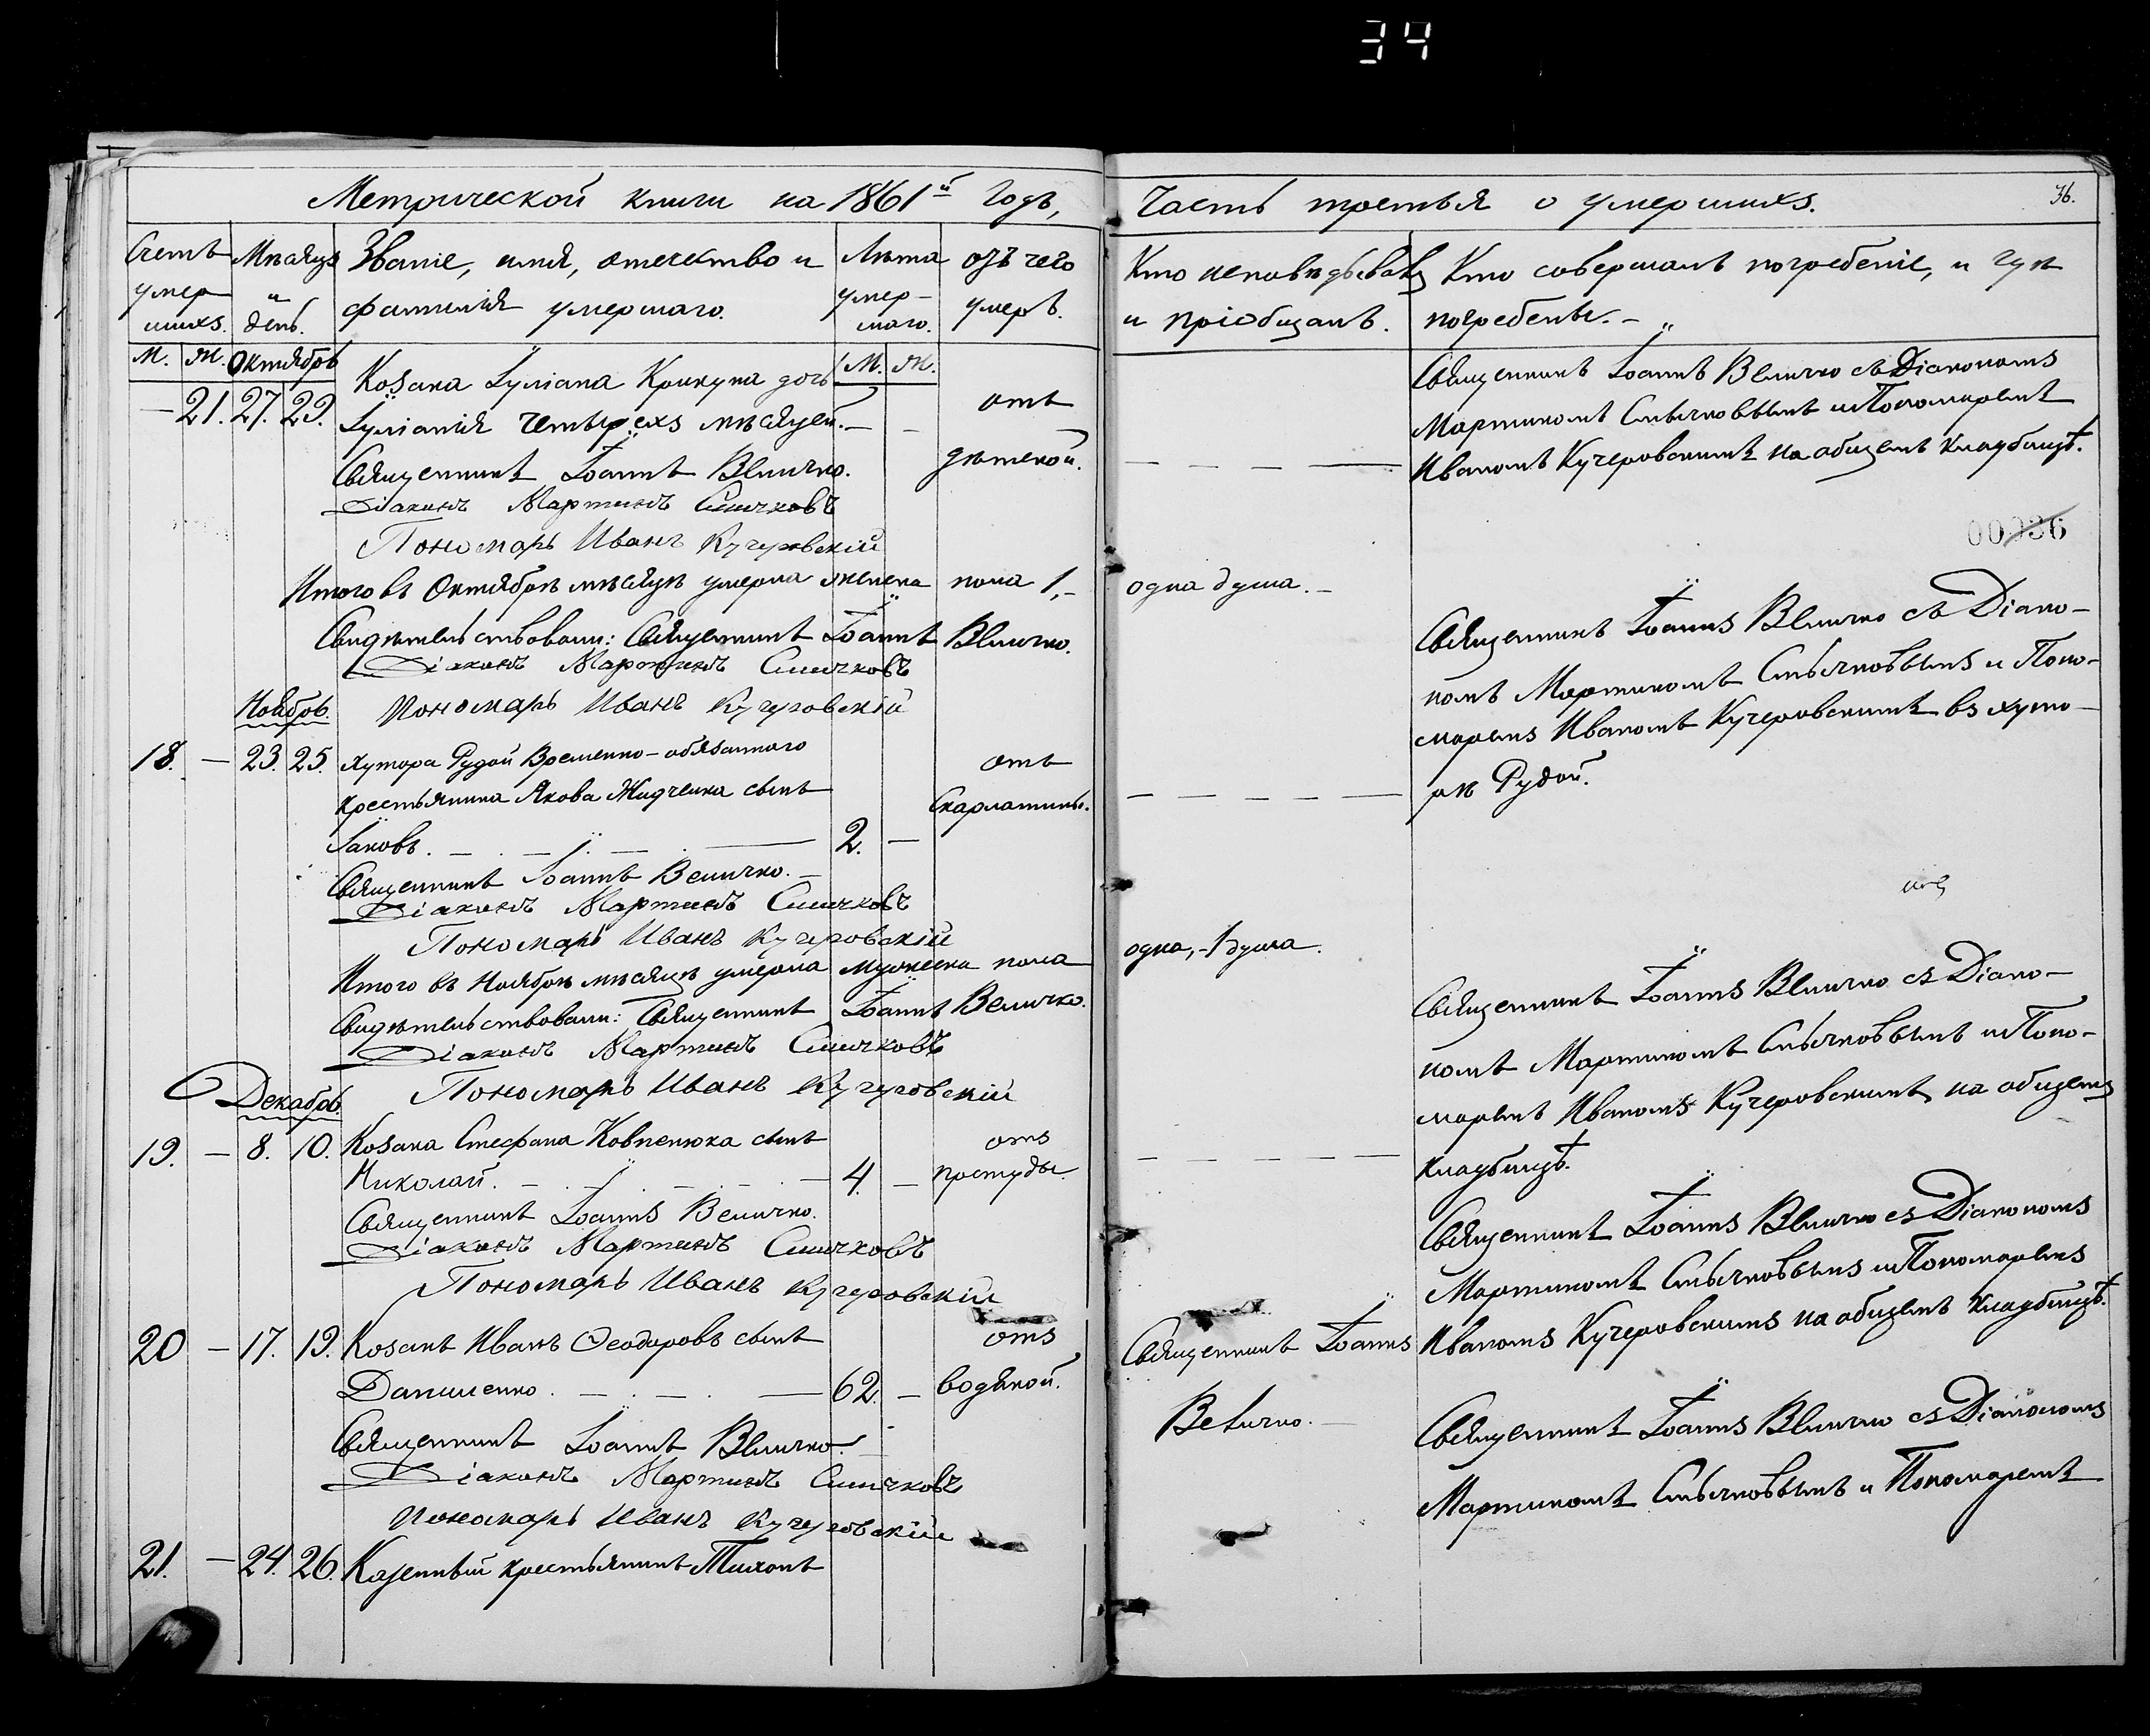 34
Метрической книги на 1861й Годъ,
Счетъ умер-шихъ.
Мѣсяцъ и день.
Званіе, имя, отечество и фамилія умершаго.
Лѣта умер-шаго.
отъ чего умеръ.
М. Ж. Октябрь
М. Ж.
— 21. 27. 29. Козака Іуліана Крикуна дочь
Іуліанія четырехъ мѣсяцей. — —
отъ
дѣтской.
Священникъ Іоаннъ Величко.
Діаконъ Мартинъ Смычковъ
Пономарь Иванъ Кучеровскій
Итого въ Октябрѣ мѣсяцѣ умерла женска пола 1,-
Свидѣтельствовали: Священникъ Іоаннъ Величко.
Діаконъ Мартинъ Смычковъ
Ноябрь. Пономарь Иванъ Кучеровскій
18. — 23. 25. хутора Рудой Временно-обязанного
крестьянина Якова Жидченка сынъ
Іаковъ. — — — 2. —
отъ
Скарлатины.
Священникъ Іоаннъ Величко. —
Діаконъ Мартинъ Смычковъ
Пономарь Иванъ Кучеровскій
Итого въ Ноябрѣ мѣсяцѣ умерла мужеска пола
Свидѣтельствовали: Священникъ Іоаннъ Величко.
Діаконъ Мартинъ Смычковъ
Декабрь. Пономарь Иванъ Кучеровскій
19. — 8. 10. Козака Стефана Ковпенюка сынъ
Николай. — — — 4. —
отъ
простуды.
Священникъ Іоаннъ Величко.
Діаконъ Мартинъ Смычковъ
Пономарь Иванъ Кучеровскій
20 — 17. 19. Козакъ Иванъ Феодоровъ сынъ
Данименко. — — — 62. —
отъ
водяной.
Священникъ Іоаннъ Величко.
Діаконъ Мартинъ Смычковъ
Пономарь Иванъ Кучеровскій
21. — 24. 26. Казенный крестьянинъ Тихонъ
Часть третья о умершихъ.
36.
Кто исповѣдывалъ и пріобщалъ.
Кто совершалъ погребеніе, и гдѣ погребены. —
Священникъ Іоаннъ Величко съ Діакономъ
Мартиномъ Смычковымъ и Пономаремъ
— — — — Иваномъ Кучеровскимъ на общемъ кладбищѣ.
00036
одна душа. —
Священникъ Іоаннъ Величко съ Діако-
номъ Мартиномъ Смычковымъ и Поно-
маремъ Иваномъ Кучеровскимъ въ хуто-
— — — — — рѣ Рудой.
одна, -1 душа.
Священникъ Іоаннъ Величко съ Діако-
номъ Мартиномъ Смычковымъ и Поно-
маремъ Иваномъ Кучеровскимъ на общемъ
— — — — — кладбищѣ.
Священникъ Іоаннъ Величко съ Діакономъ
Мартиномъ Смычковымъ и Пономаремъ
Иваномъ Кучеровскимъ на общемъ кладбищѣ.
Священникъ Іоаннъ
Величко. —
Священникъ Іоаннъ Величко съ Діакономъ
Мартиномъ Смычковымъ и Пономаремъ